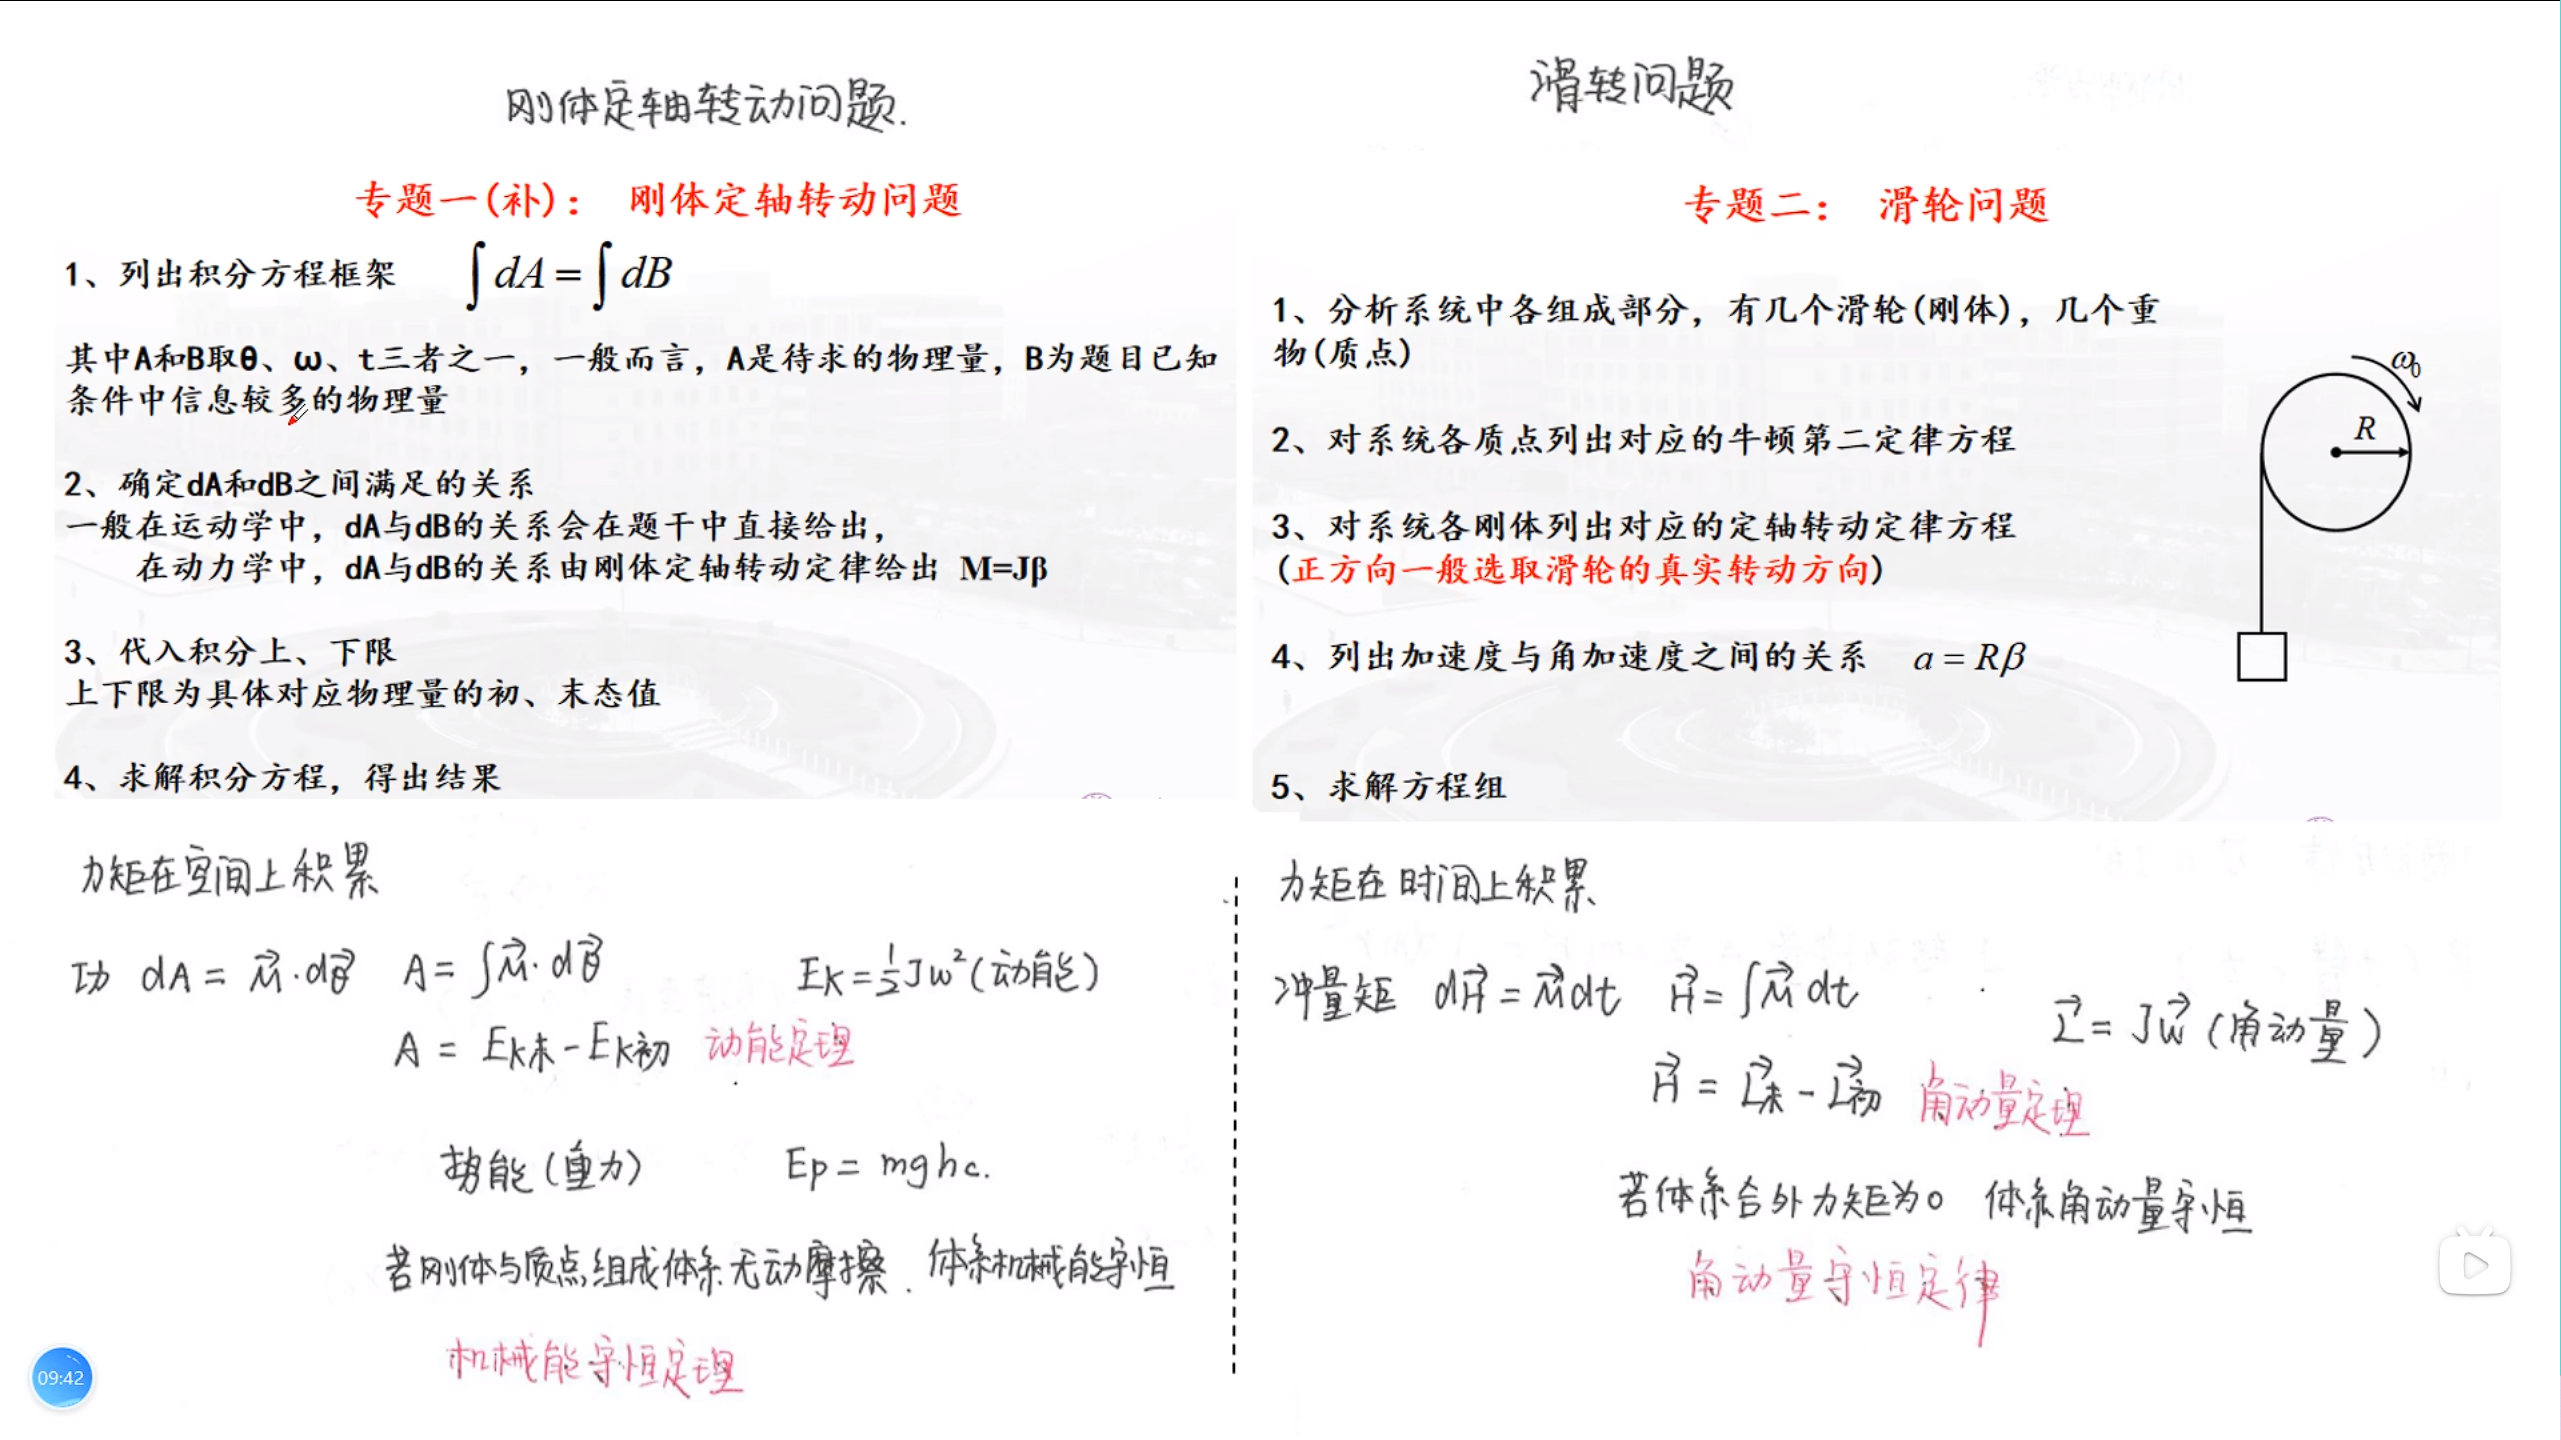 刚体定轴转动问题.
专题一(补)： 刚体定轴转动问题
1、列出积分方程框架 ∫dA=∫dB
其中A和B取θ、ω、t三者之一，一般而言，A是待求的物理量，B为题目已知
条件中信息较多的物理量
2、确定dA和dB之间满足的关系
一般在运动学中，dA与dB的关系会在题干中直接给出，
在动力学中，dA与dB的关系由刚体定轴转动定律给出 M=Jβ
3、代入积分上、下限
上下限为具体对应物理量的初、末态值
4、求解积分方程，得出结果
滑转问题
专题二： 滑轮问题
1、分析系统中各组成部分，有几个滑轮(刚体)，几个重
物(质点)
2、对系统各质点列出对应的牛顿第二定律方程
3、对系统各刚体列出对应的定轴转动定律方程
(正方向一般选取滑轮的真实转动方向)
4、列出加速度与角加速度之间的关系 a=Rβ
5、求解方程组
ω₀
R
力矩在空间上积累
功 dA = M⃗·dθ⃗ A = ∫M⃗·dθ⃗ Eₖ=½Jω²(动能)
A = Eₖ末 - Eₖ初 动能定理
势能(重力) Ep = mghc.
若刚体与质点组成体系无动摩擦. 体系机械能守恒
机械能守恒定理
力矩在时间上积累
冲量矩 dH⃗ = M⃗dt H⃗ = ∫M⃗dt
L⃗ = Jω⃗ (角动量)
H⃗ = L⃗末 - L⃗初 角动量定理
若体系合外力矩为0 体系角动量守恒
角动量守恒定律
09:42